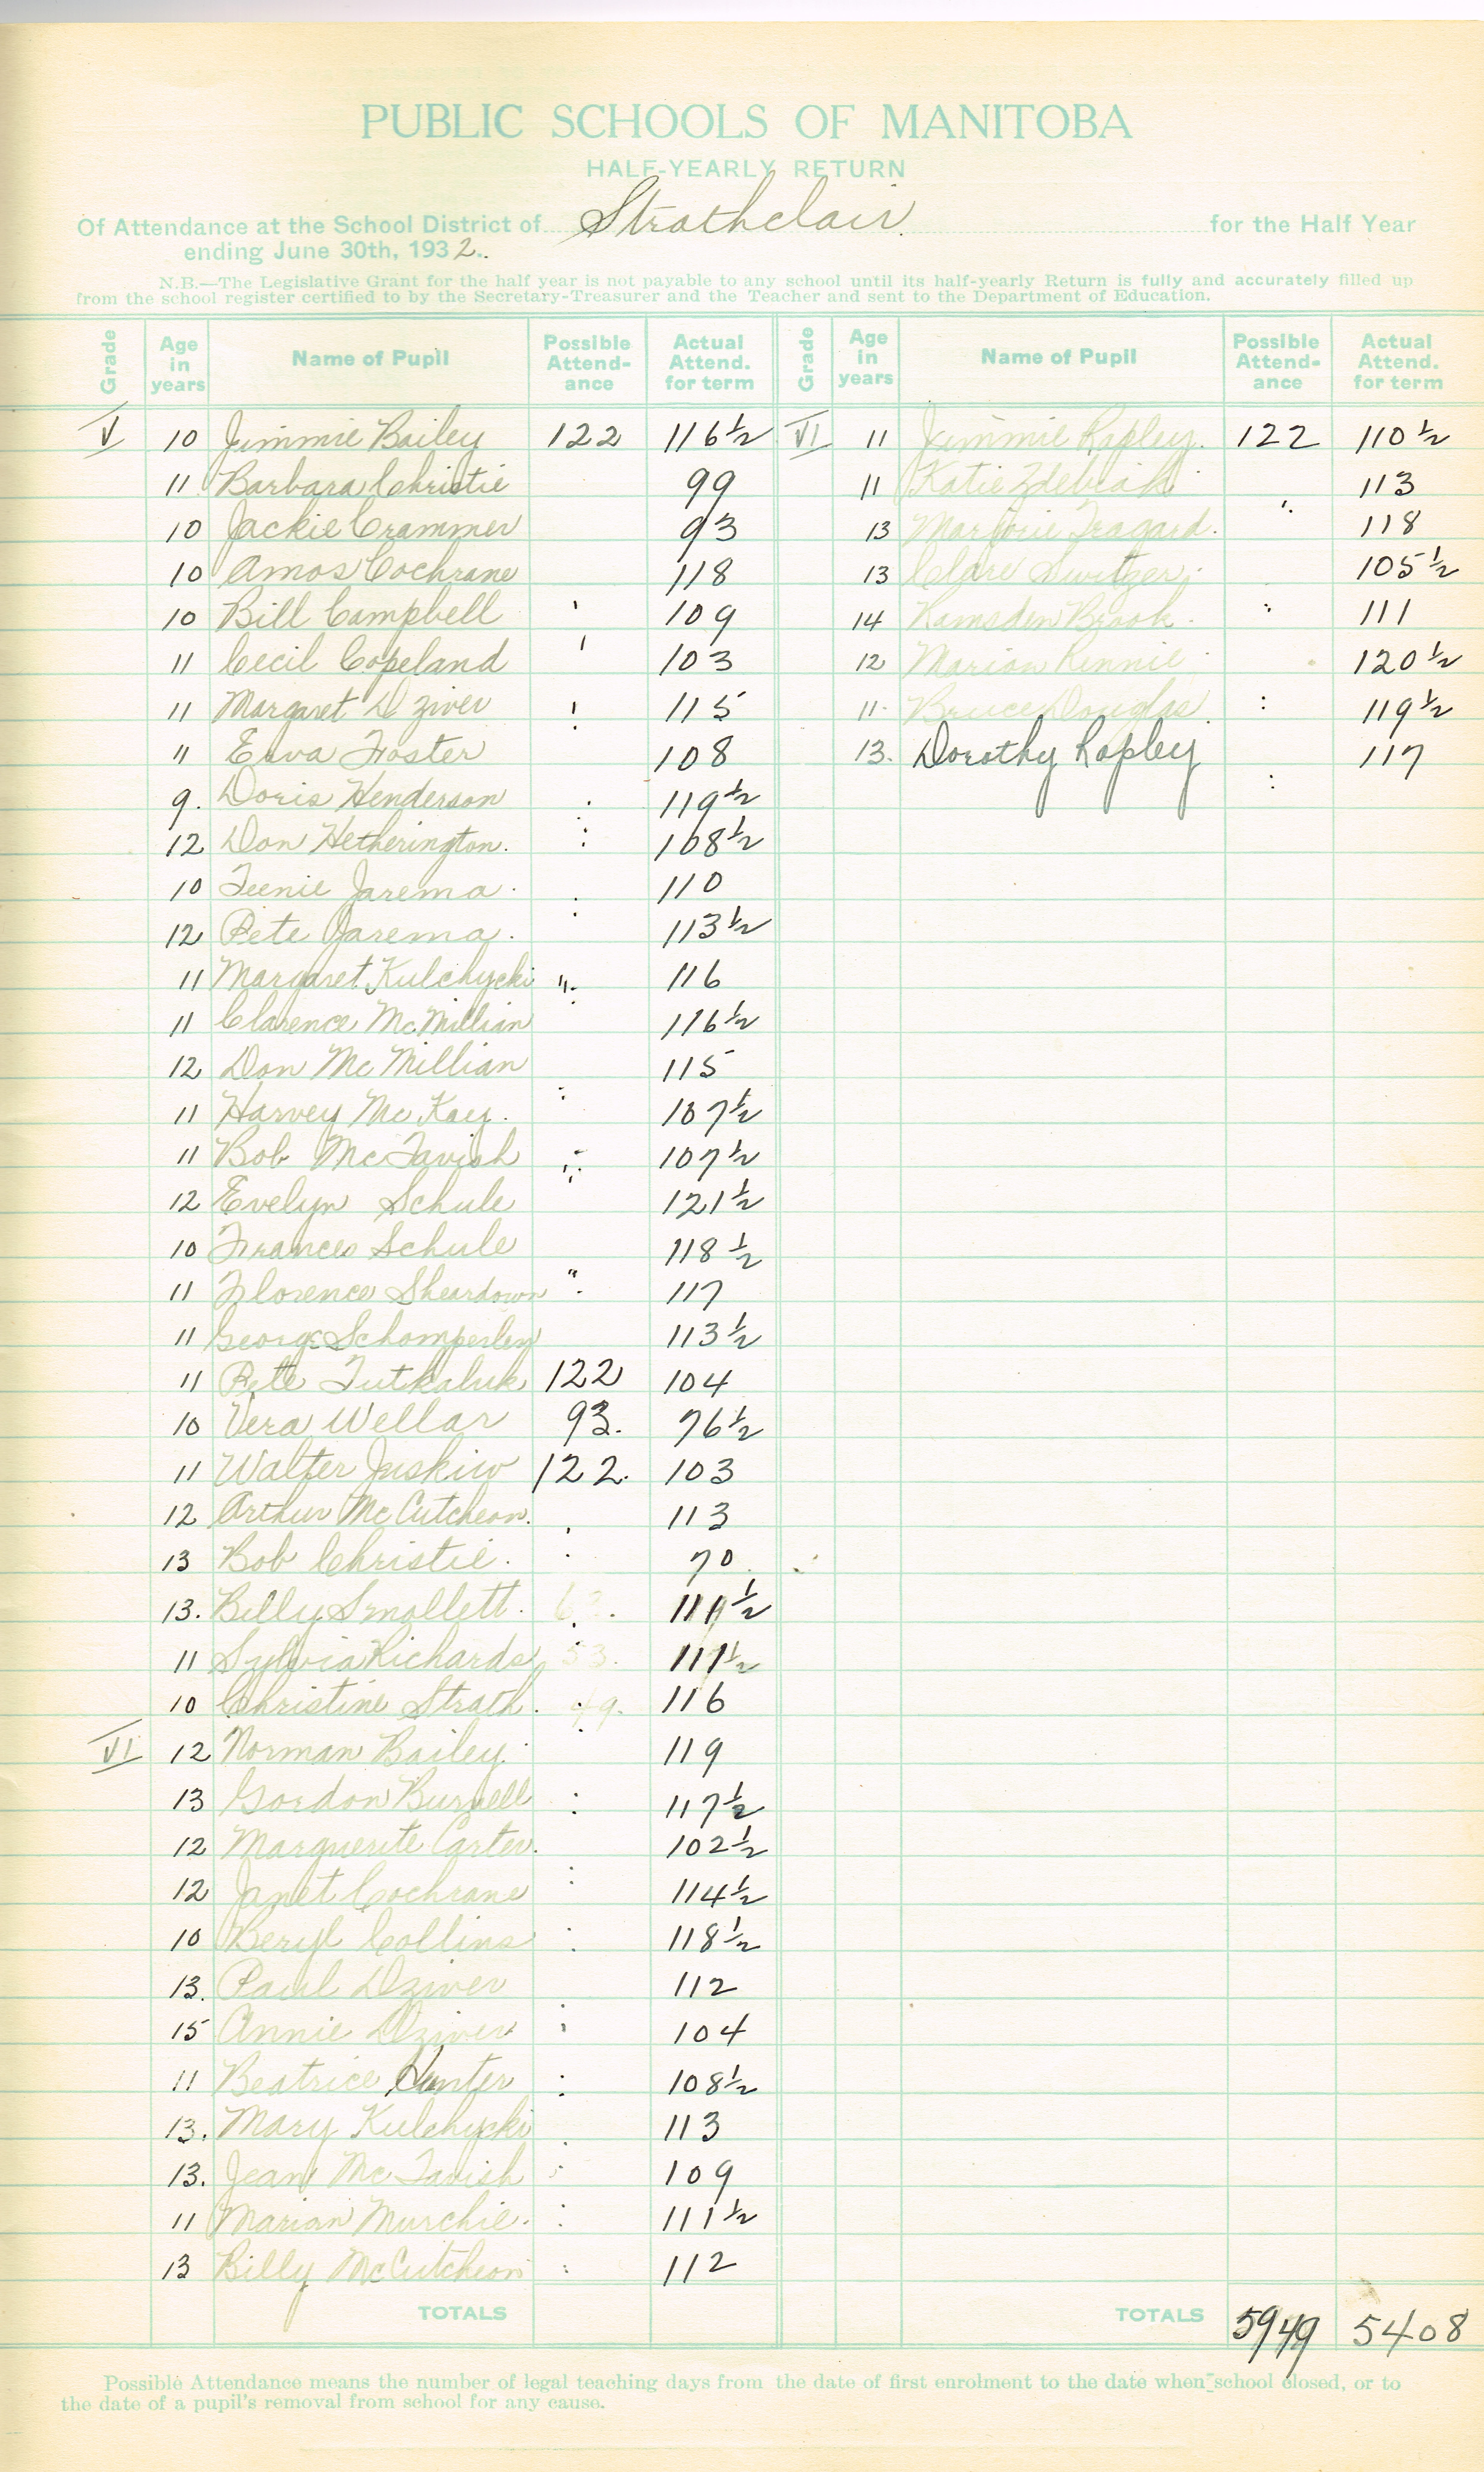 PUBLIC SCHOOLS OF MANITOBA
HALF-YEARLY RETURN
Of Attendance at the School District of Strathclair for the Half Year
ending June 30th, 1932.
N.B.—The Legislative Grant for the half year is not payable to any school until its half-yearly Return is fully and accurately filled up
from the school register certified to by the Secretary-Treasurer and the Teacher and sent to the Department of Education.
Grade Age in years Name of Pupil Possible Attend-ance Actual Attend. for term Grade Age in years Name of Pupil Possible Attend-ance Actual Attend. for term
V 10 Jimmie Bailey 122 116½
11 Barbara Christie 99
10 Jackie Crammer 93
10 Amos Cochrane 118
10 Bill Campbell 109
11 Cecil Copeland 103
11 Margaret Dziver 115
11 Erva Foster 108
9. Doris Henderson 119½
12 Don Hetherington. 108½
10 Teenie Jarema. 110
12 Pete Jarema. 113½
11 Margaret Kulchycki " 116
11 Clarence McMillian 116½
12 Don McMillian 115
11 Harvey McKay. 107½
11 Bob McTavish 107½
12 Evelyn Schule 121½
10 Frances Schule 118½
11 Florence Sheardown " 117
11 George Schomperlen 113½
11 Pete Tutkaluk 122 104
10 Vera Wellar 93. 76½
11 Walter Juskiw 122. 103
12 Arthur McCutcheon. 113
13 Bob Christie. 70
13. Billy Smollett. ½
11 Sylvia Richards 53. 111½
10 Christine Strath. 49. 116
VI 12 Norman Bailey. 119
13 Gordon Burnell 117½
12 Marguerite Carter. 102½
12 Janet Cochrane 114½
10 Beryl Collins 118½
13. Paul Dziver 112
15 Annie Dziver 104
11 Beatrice Hunter 108½
13. Mary Kulchycki 113
13. Jean McTavish 109
11 Marian Murchie. 111½
13 Billy McCutcheon 112
TOTALS
VI 11 Jimmie Rapley. 122 110½
11 Katie Zdebiak 113
13 Marjorie Tragard. 118
13 Clare Switzer. 105½
14 Ramsden Brook. 111
12 Marion Rennie 120½
11 Bruce Douglas. 119½
13. Dorothy Rapley 117
TOTALS 5949 5408
Possible Attendance means the number of legal teaching days from the date of first enrolment to the date when school closed, or to
the date of a pupil's removal from school for any cause.